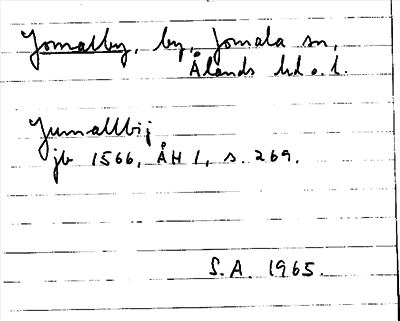 Jomalby, by, Jomala sn,
Ålands hd o. l.
Jumallbij
jb 1566, ÅH 1, s. 269.
S.A. 1965.